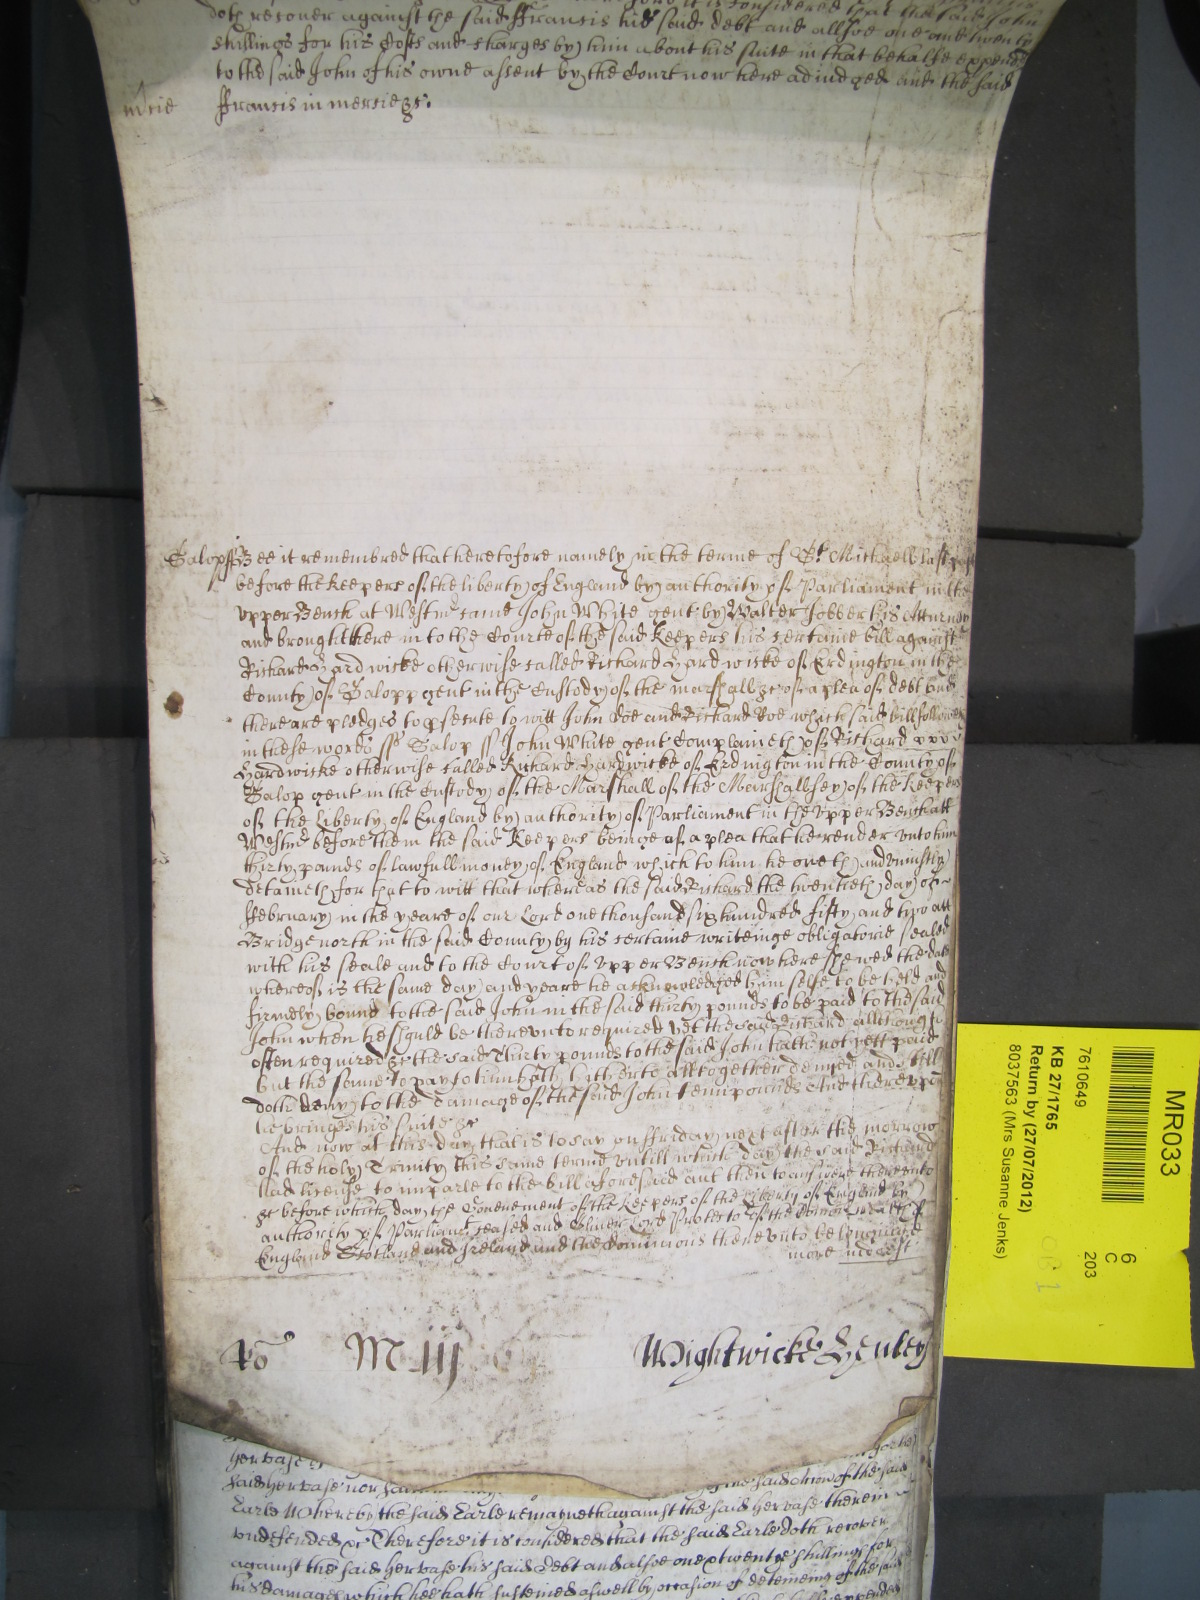 doth recover against the said Francis his said debt and allsoe one and twenty
shillings for his Costs and charges by him about his suite in that behalfe expended
to the said John of his owne assent by the Court now here adjudged and the said
m'cie ffrancis in mercie &c.
Salop ss Bee it remembred that heretofore namely in the terme of St Michaell last past
before the Keepers of the liberty of England by authority of Parliament in the
vpper Bench at Westmr came John White gent by Walter Jobber his Atturney
and brought here in to the Courte of the said Keepers his certaine bill against
Richard Hardwicke otherwise called Richard Hardwicke of Erdington in the
County of Salopp gent in the Custody of the marshall &c of a plea of debt And
there are pledges to psecute to witt John Doe and Richard Roe which said bill followes
in these words ss Salop ss John White gent Complaineth of Richard
Hardwicke otherwise called Richard Hardwicke of Erdington in the County of
Salop gent in the Custody of the Marshall of the Marshallsey of the Keepers
of the Liberty of England by authority of Parliament in the vpper Bench att
Westmr before them the said Keepers beinge of a plea that he render vnto him
thirty pounds of lawfull money of England which to him he oweth and uniustly
detaineth for that to witt that whereas the said Richard the twentieth day of
ffebruary in the yeare of our Lord one thousand six hundred fifty and two att
Bridgenorth in the said County by his certaine writeinge obligatorie sealed
with his seale and to the Court of vpper Bench now here shewed the date
whereof is the same day and yeare he acknowledged him selfe to be held and
firmely bound to the said John in the said thirty pounds to be paid to the said
John when he should be therevnto required yet the said Richard allthough
often required &c the said Thirty pounds to the said John hath not yett paid
but the same to pay to him hath hitherto alltogether denyed and still
doth deny to the damage of the said John Tenn pounds And therevpon
he bringes his suite &c
And now at this day that is to say on ffriday next after the morrow
of the holy Trinity this same terme vntill which day the said Richard
had license to imparle to the bill aforesaid and then to answere therevnto
&c before which day the Government of the Keepers of the liberty of England by
authority of Parliamt ceased and Oliver Lord Protector of the Commonwealth of
England Scotland and Ireland and the dominions therevnto belonginge
more
M iij Wightwicke Henley
said Hervase nor
Earle Whereby the said Earle remayneth against the said Hervase therein
vndefended &c Therefore it is considered that the said Earle doth recover
against the said Hervase his said debt and alsoe one & twenty shillings for
his damages which hee hath susteined aswell by occasion of deteineing of the said
MR033
7610649
6
C
203
KB 27/1765
Return by (27/07/2012)
8037563 (Mrs Susanne Jenks)